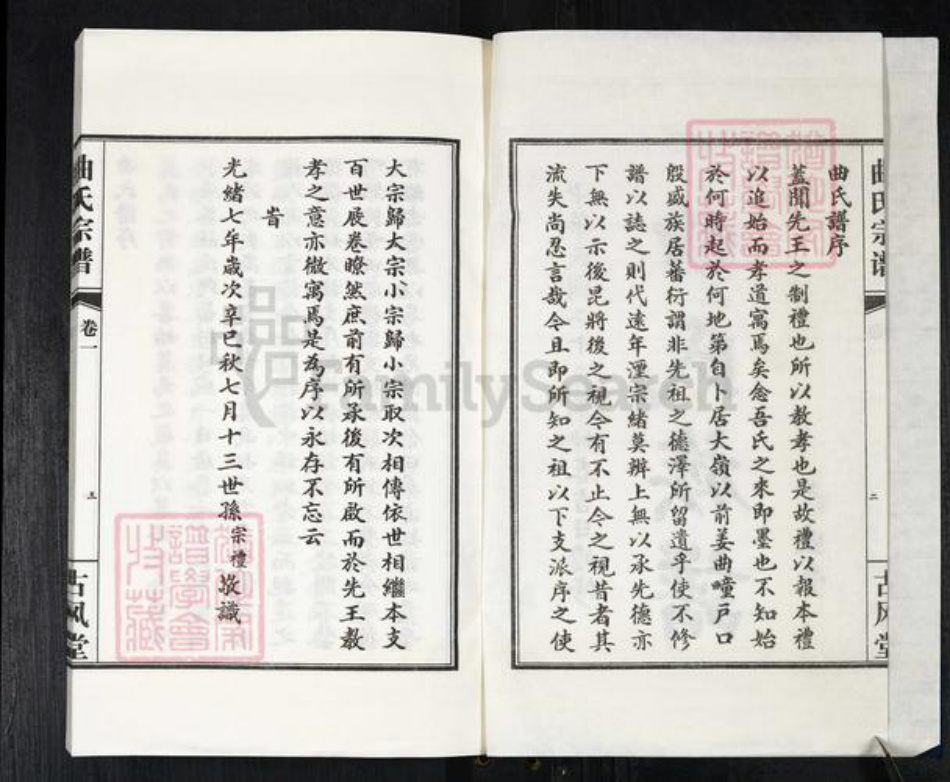 曲氏宗谱
二
古风堂
曲氏譜序
蓋聞先王之制禮也所以教孝也是故禮以報本禮
以追始而孝道寓焉矣念吾氏之來即墨也不知始
於何時起於何地第自卜居大嶺以前姜曲疃戸口
殷盛族居蕃衍謂非先祖之德澤所留遺乎使不修
譜以誌之則代遠年湮宗緒莫辦上無以承先德亦
下無以示後昆將後之視今有不止今之視昔者其
流失尚忍言哉今且即所知之祖以下支派序之使
大宗歸大宗小宗歸小宗取次相傳依世相繼本支
百世展卷瞭然庶前有所承後有所啟而於先王教
孝之意亦微寓焉是為序以永存不忘云
旹
光緒七年歲次辛巳秋七月十三世孫宗禮敬識
曲氏宗譜
卷一
三
古风堂
FamilySearch